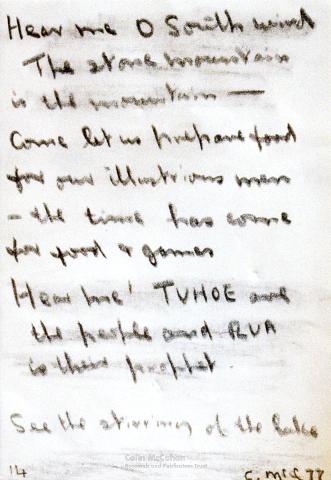 Hear me O South wind
The stone mountain
is the mountain —
Come let us prepare food
for our illustrious men
- the time has come
for food & games
Hear me! TUHOE are
the people and RUA
is their prophet.
See the stirring of the lake
Colin McCahon
Research and Publication Trust
14
C. McC 77